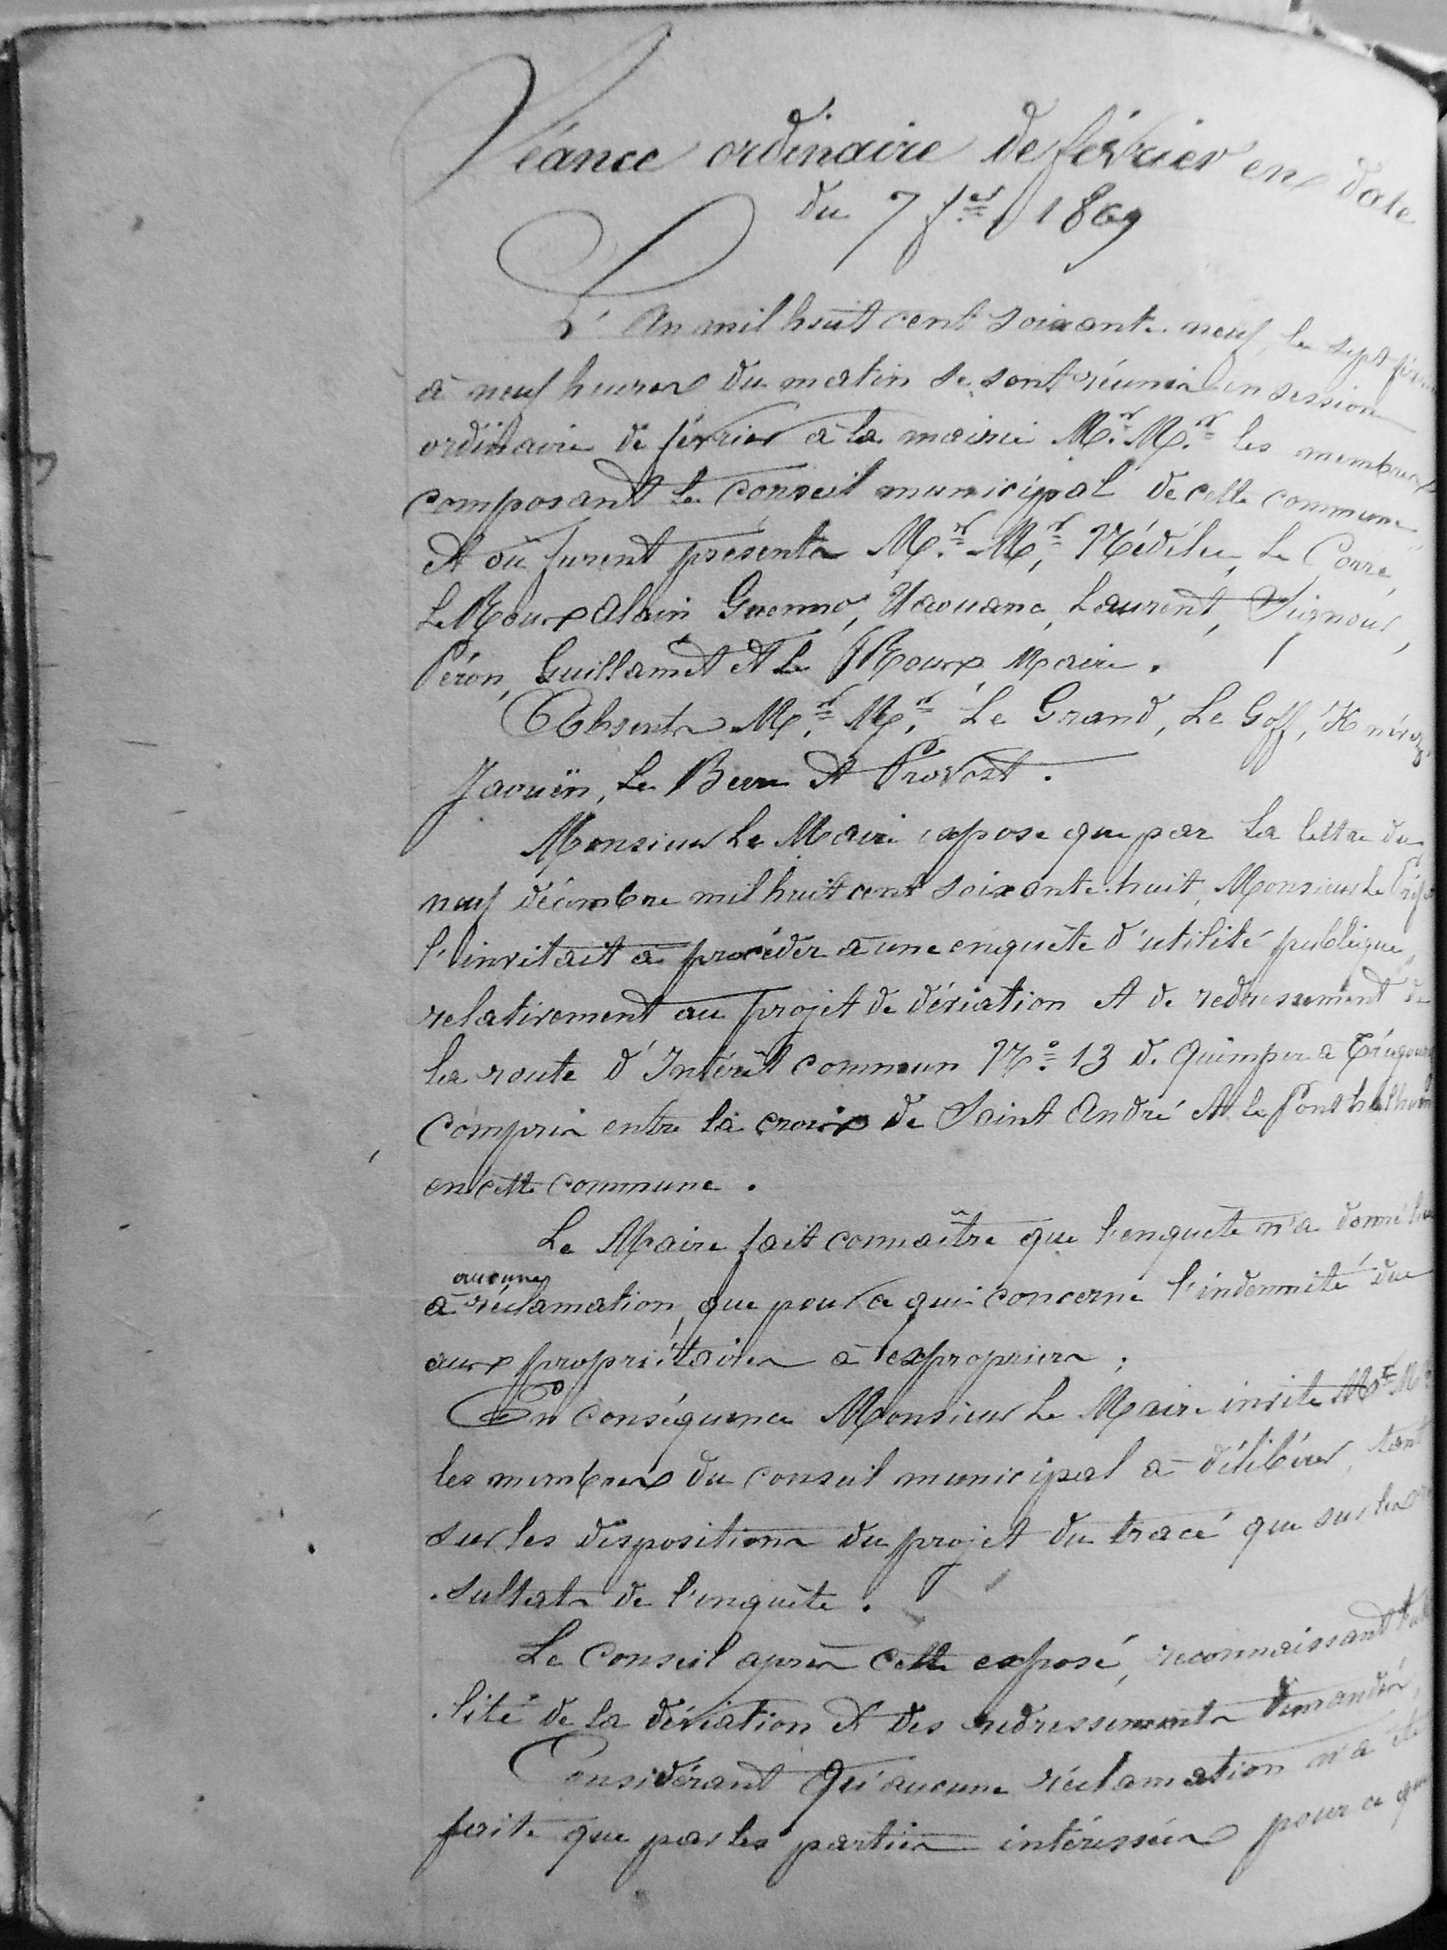 Séance ordinaire de février en date
du 7 fer 1869
L'An mil huit cent soixante neuf, le sept
à neuf heures du matin se sont réunis en session
ordinaire de février à la mairie Mr. Mr. les membres
composant le conseil municipal de cette commune
et où furent présents Mr. Mr, Nédélec, Le Corre,
Le Roux Alain Guenno, Yaouanc, Laurent,
Péron, Guillamet et Le Roux Maire.
Absents Mr. Mr. Le Grand, Le Goff,
Jaouën, Le Berre et Provost.
Monsieur Le Maire expose que par la lettre du
neuf décembre mil huit cent soixante huit, Monsieur Le
l'invitait à procéder à une enquête d'utilité publique,
relativement au projet de déviation et de redressement de
la route d'Intérêt commun No. 13 de Quimper à
compris entre la croix de Saint André et le
en cette commune.
Le Maire fait connaître que l'enquête n'a donné
à aucune réclamation, que pour ce qui concerne l'indemnité due
aux propriétaires à exproprier;
En conséquence Monsieur Le Maire invite Mr M
les membres du conseil municipal à délibérer, tant
sur les dispositions du projet du tracé que sur les
sultats de l'enquête.
Le Conseil après cette exposé, reconnaissant
lité de la déviation et des redressements demandés,
Considérant qu'aucune réclamation n'a été
faite que par les parties intéressées pour ce